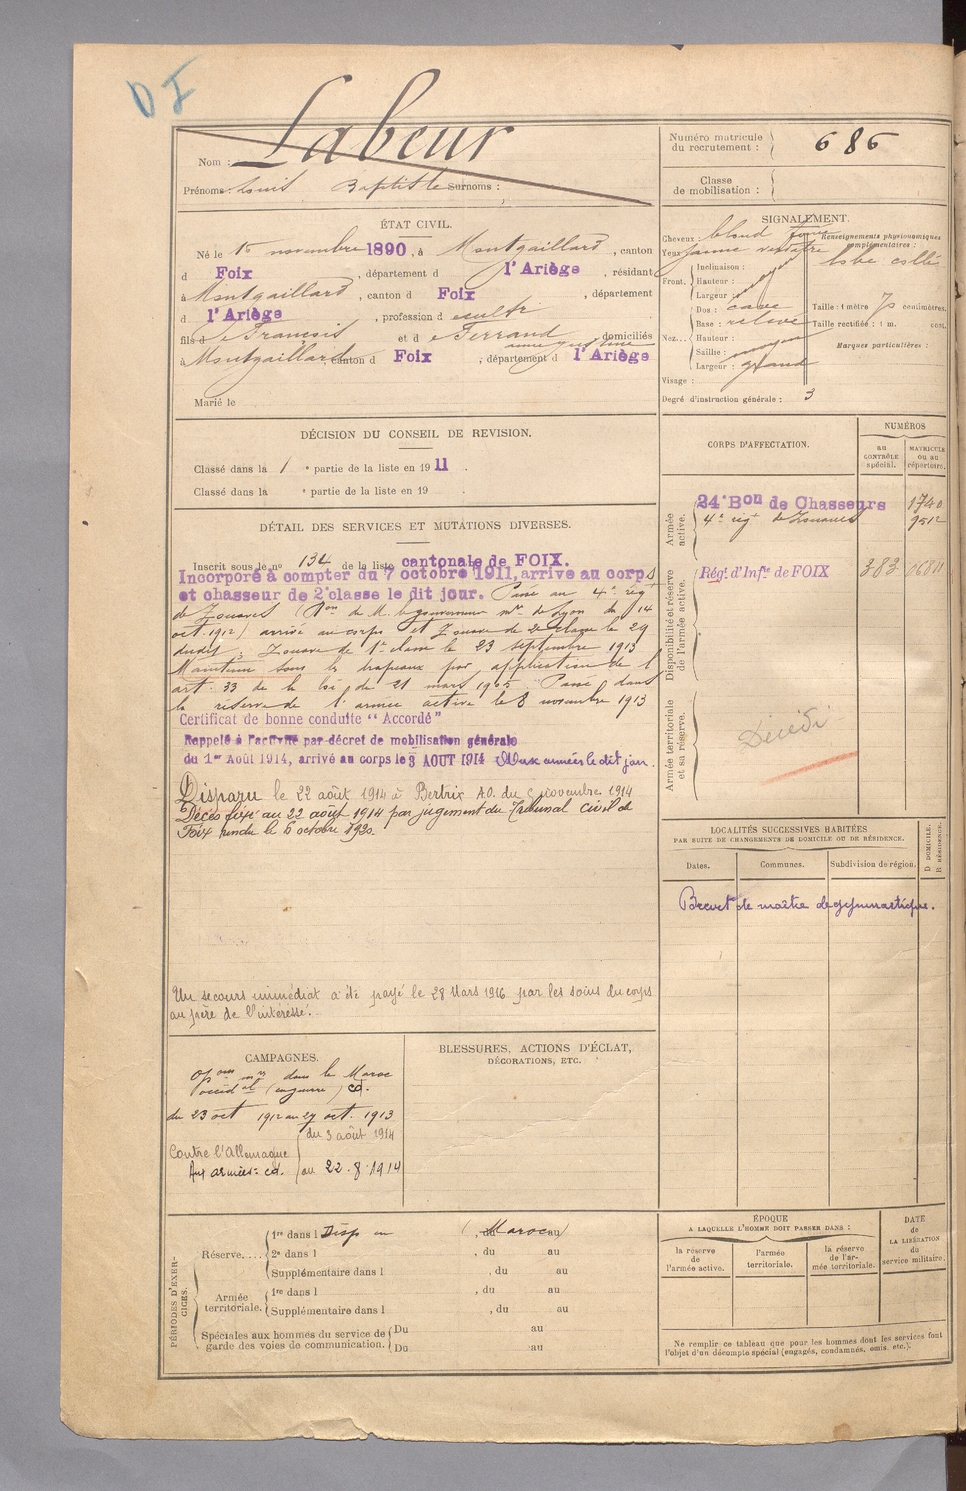 DI
Nom : Labeur
Prénoms : Louis Baptiste Surnoms :
Numéro matricule du recrutement : 686
Classe de mobilisation :
ÉTAT CIVIL.
Né le 15 novembre 1890, à Montgaillard, canton
d Foix, département d l'Ariège, résidant
à Montgaillard, canton d Foix, département
d l'Ariège, profession d cultr
fils d e François et d e Ferrand domiciliés
à Montgaillard, canton d Foix, département d l'Ariège
Marié le
SIGNALEMENT.
Cheveux : blond
Yeux jaune verdâtre
Renseignements physionomiques complémentaires :
lobe collé
Front. Inclinaison :
Hauteur :
Largeur :
Nez... Dos : cave
Base : relevé
Hauteur :
Saillie : moyen
Largeur : grand
Taille : 1 mètre 70 centimètres.
Taille rectifiée : 1 m. cent.
Marques particulières :
Visage :
Degré d'instruction générale : 3
DÉCISION DU CONSEIL DE REVISION.
Classé dans la 1 e partie de la liste en 1911.
Classé dans la e partie de la liste en 19
DÉTAIL DES SERVICES ET MUTATIONS DIVERSES.
Inscrit sous le no 134 de la liste cantonale de FOIX.
Incorporé à compter du 7 octobre 1911, arrive au corps
et chasseur de 2e classe le dit jour. Passé au 4e régt
de Zouaves (Don de M. le gouverneur mre de Lyon du 14
oct. 1912) arrivé au corps et Zouave de 2e classe le 29
dudit; Zouave de 1e classe le 23 septembre 1913
Maintenu sous les drapeaux par application de l'
art. 33 de la loi du 21 mars 1905. Passé dans
la réserve de l'armée active le 8 novembre 1913
Certificat de bonne conduite "Accordé"
Rappelé à l'activité par décret de mobilisation générale
du 1er Août 1914, arrivé au corps le 3 AOUT 1914 Aux armées le dit jour.
Disparu le 22 août 1914 à Bertrix A.O. du 9 novembre 1914
Décès fixé au 22 août 1914 par jugement du Tribunal civil de
Foix rendu le 6 octobre 1920.
Un secours immédiat a été payé le 28 Mars 1916 par les soins du corps
au père de l'intéressé.
CORPS D'AFFECTATION.
NUMÉROS
au CONTRÔLE spécial.
MATRICULE ou au répertoire.
Armée active.
24e Bon de Chasseurs 1740
4e régt de Zouaves
Disponibilité et réserve de l'armée active.
Régt. d'Infie de FOIX 383
Armée territoriale et sa réserve.
Décédé
LOCALITÉS SUCCESSIVES HABITÉES
PAR SUITE DE CHANGEMENTS DE DOMICILE OU DE RÉSIDENCE.
Dates.
Communes.
Subdivision de région.
D DOMICILE.
R RÉSIDENCE.
Brevet de maître de gymnastique.
CAMPAGNES.
Opons mres dans le Maroc
Occidal (en guerre) cd.
du 23 oct 1912 au 27 oct. 1913
Contre l'Allemagne du 3 août 1914
Aux armées: cd. au 22.8.1914
BLESSURES, ACTIONS D'ÉCLAT,
DÉCORATIONS, ETC.
PÉRIODES D'EXERCICES.
Réserve....
1re dans l Disp au (Maroc) , du au
2e dans l , du au
Supplémentaire dans l , du au
Armée territoriale.
1re dans l , du au
Supplémentaire dans l , du au
Spéciales aux hommes du service de garde des voies de communication.
Du au
Du au
ÉPOQUE
A LAQUELLE L'HOMME DOIT PASSER DANS :
la réserve de l'armée active.
l'armée territoriale.
la réserve de l'armée territoriale.
DATE de LA LIBÉRATION du service militaire.
Ne remplir ce tableau que pour les hommes dont les services font
l'objet d'un décompte spécial (engagés, condamnés, omis, etc.).